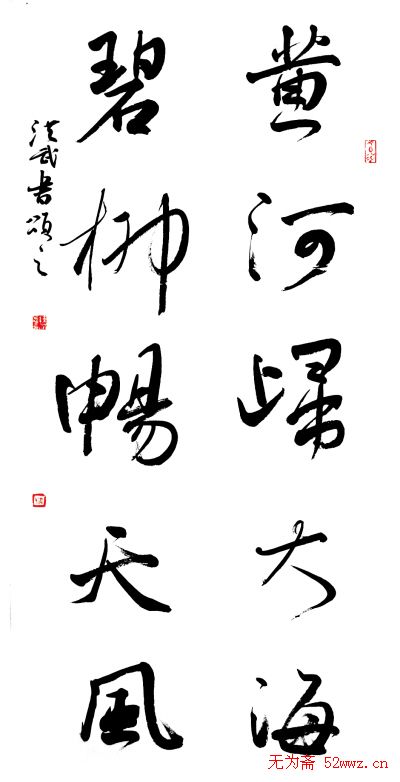 黄河歸大海
碧柳暢天风
洪武书颂之
无为斋 52wwz.cn